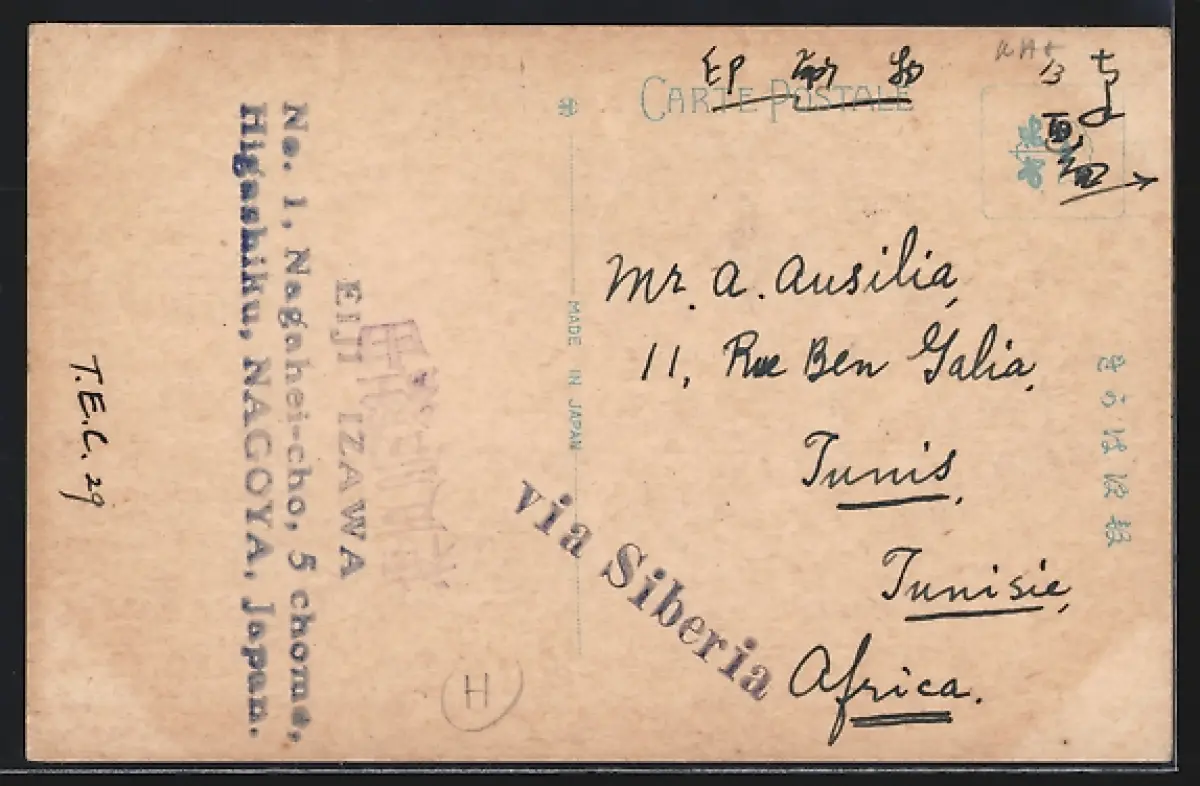 CARTE POSTALE
印刷物
Mr. A. Ausilia,
11, Rue Ben Galia,
Tunis,
Tunisie,
Africa.
via Siberia
MADE IN JAPAN
EIJI IZAWA
No. 1, Nagahei-cho, 5 chome,
Higashiku, NAGOYA, Japan.
T.E.C. 29
H